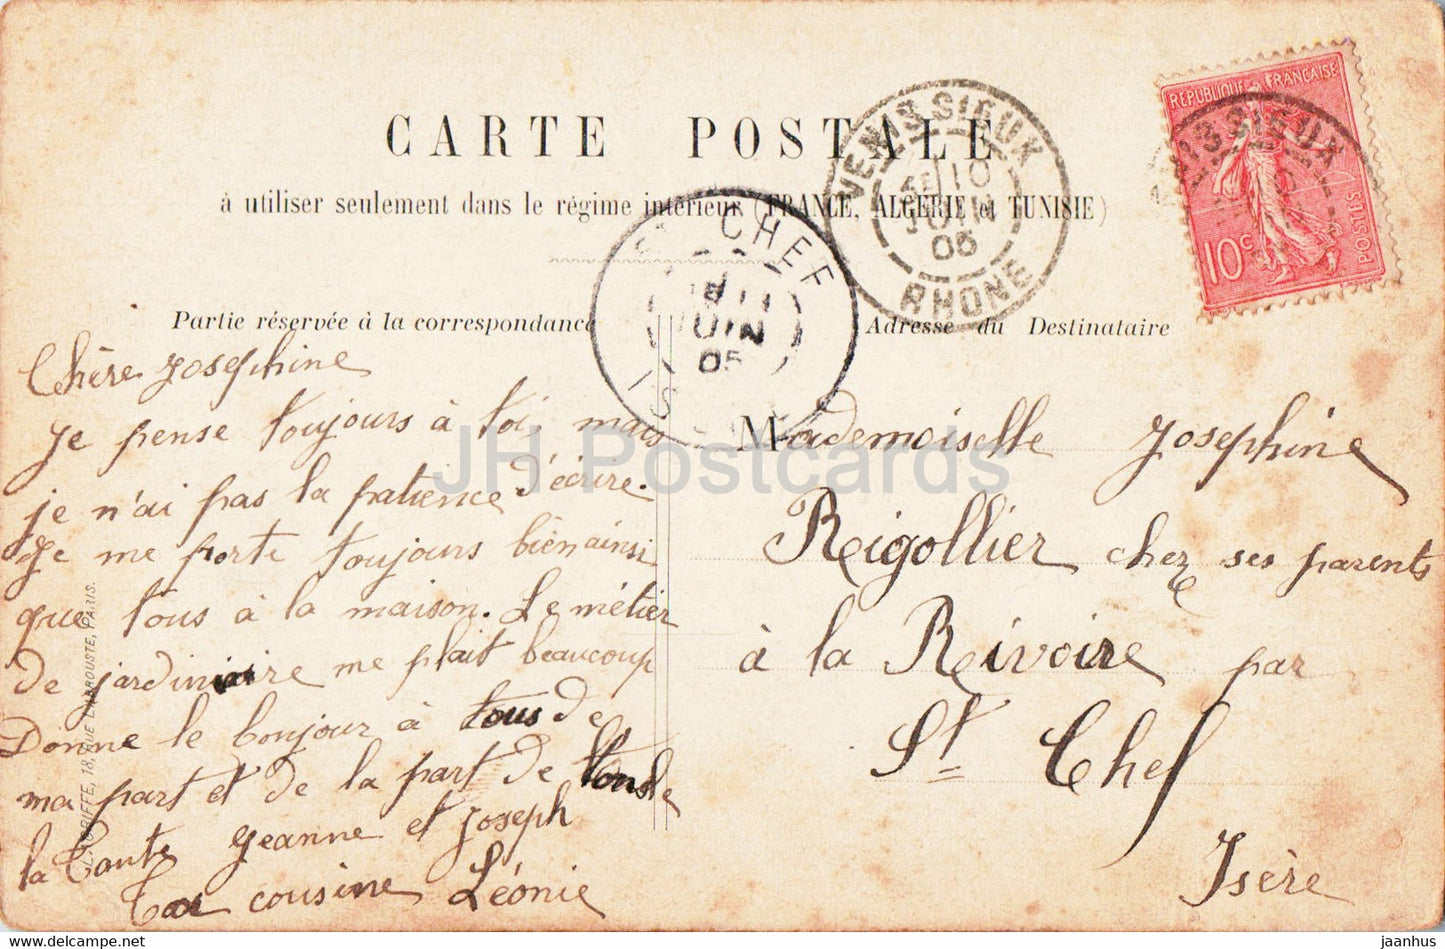 CARTE POSTALE
à utiliser seulement dans le régime intérieur (FRANCE, ALGERIE et TUNISIE)
Partie réservée à la correspondance
Adresse du Destinataire
VENISSIEUX
10
JUIN
05
RHONE
CHEF
11
JUIN
05
REPUBLIQUE FRANÇAISE
10c
POSTES
Chère Josephine
je pense toujours à toi, mais
je n'ai pas la patience d'écrire.
Je me porte toujours bien ainsi
que tous à la maison. Le métier
de jardinière me plait beaucoup
Donne le bonjour à tous de
ma part et de la part de tous
la Tante Jeanne et Joseph
Ta cousine Léonie
Mademoiselle Josephine
Rigollier chez ses parents
à la Rivoire par
St Chef
Isère
18, RUE LABROUSTE, PARIS.
JH Postcards
www.hippostcard.com
jaanhus